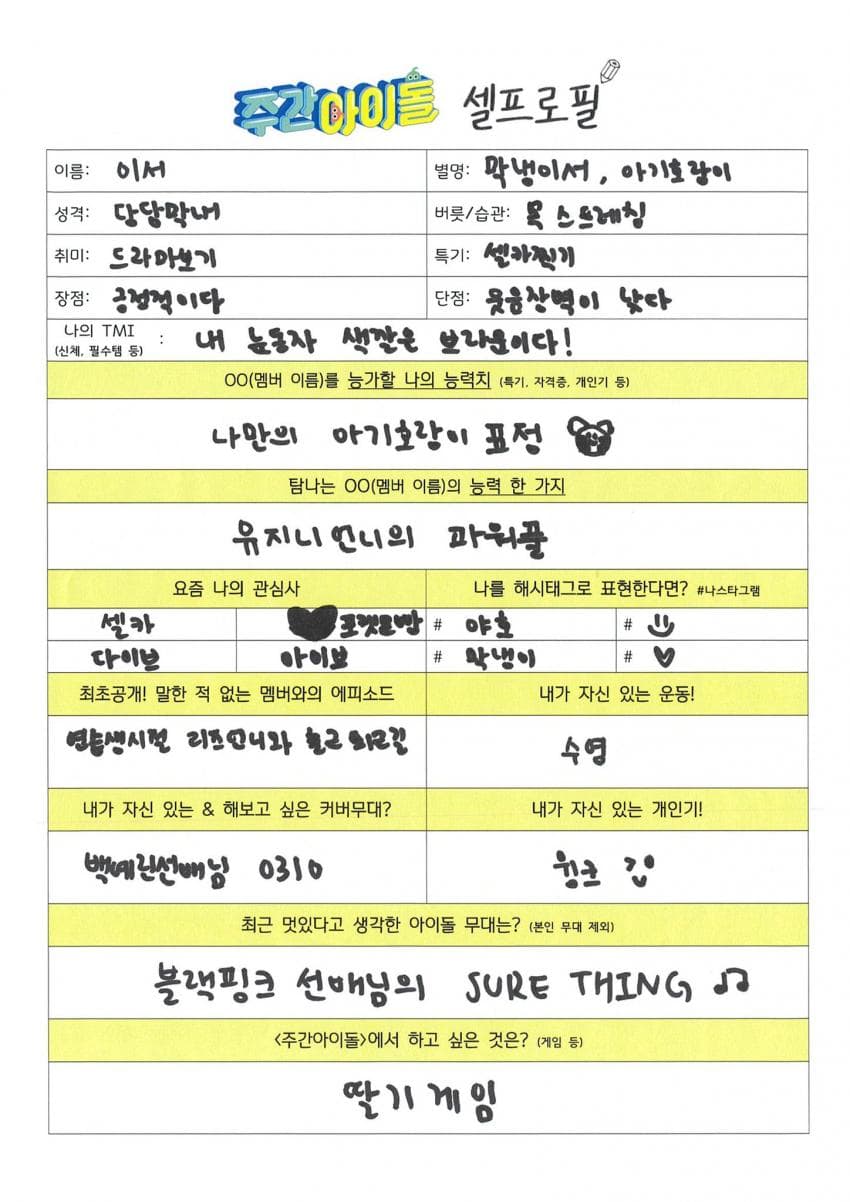 주간아이돌 셀프로필
이름: 이서 별명: 막냉이서, 아기호랑이
성격: 당당막내 버릇/습관: 목 스프레칭
취미: 드라마보기 특기: 셀카찍기
장점: 긍정적이다 단점: 웃음장벽이 낮다
나의 TMI
(신체, 필수템 등) : 내 눈동자 색깔은 브라운이다!
OO(멤버 이름)를 능가할 나의 능력치 (특기, 자격증, 개인기 등)
나만의 아기호랑이 표정
탐나는 OO(멤버 이름)의 능력 한 가지
유지니언니의 파워풀
요즘 나의 관심사 나를 해시태그로 표현한다면? #나스타그램
셀카 포켓몬빵 # 야호 #
다이브 아이브 # 막냉이 # ♥
최초공개! 말한 적 없는 멤버와의 에피소드 내가 자신 있는 운동!
연습생시절 리즈언니와 출근 퇴근길 수영
내가 자신 있는 & 해보고 싶은 커버무대? 내가 자신 있는 개인기!
백예린선배님 0310 윙크
최근 멋있다고 생각한 아이돌 무대는? (본인 무대 제외)
블랙핑크 선배님의 SURE THING ♫
<주간아이돌>에서 하고 싶은 것은? (게임 등)
딸기게임